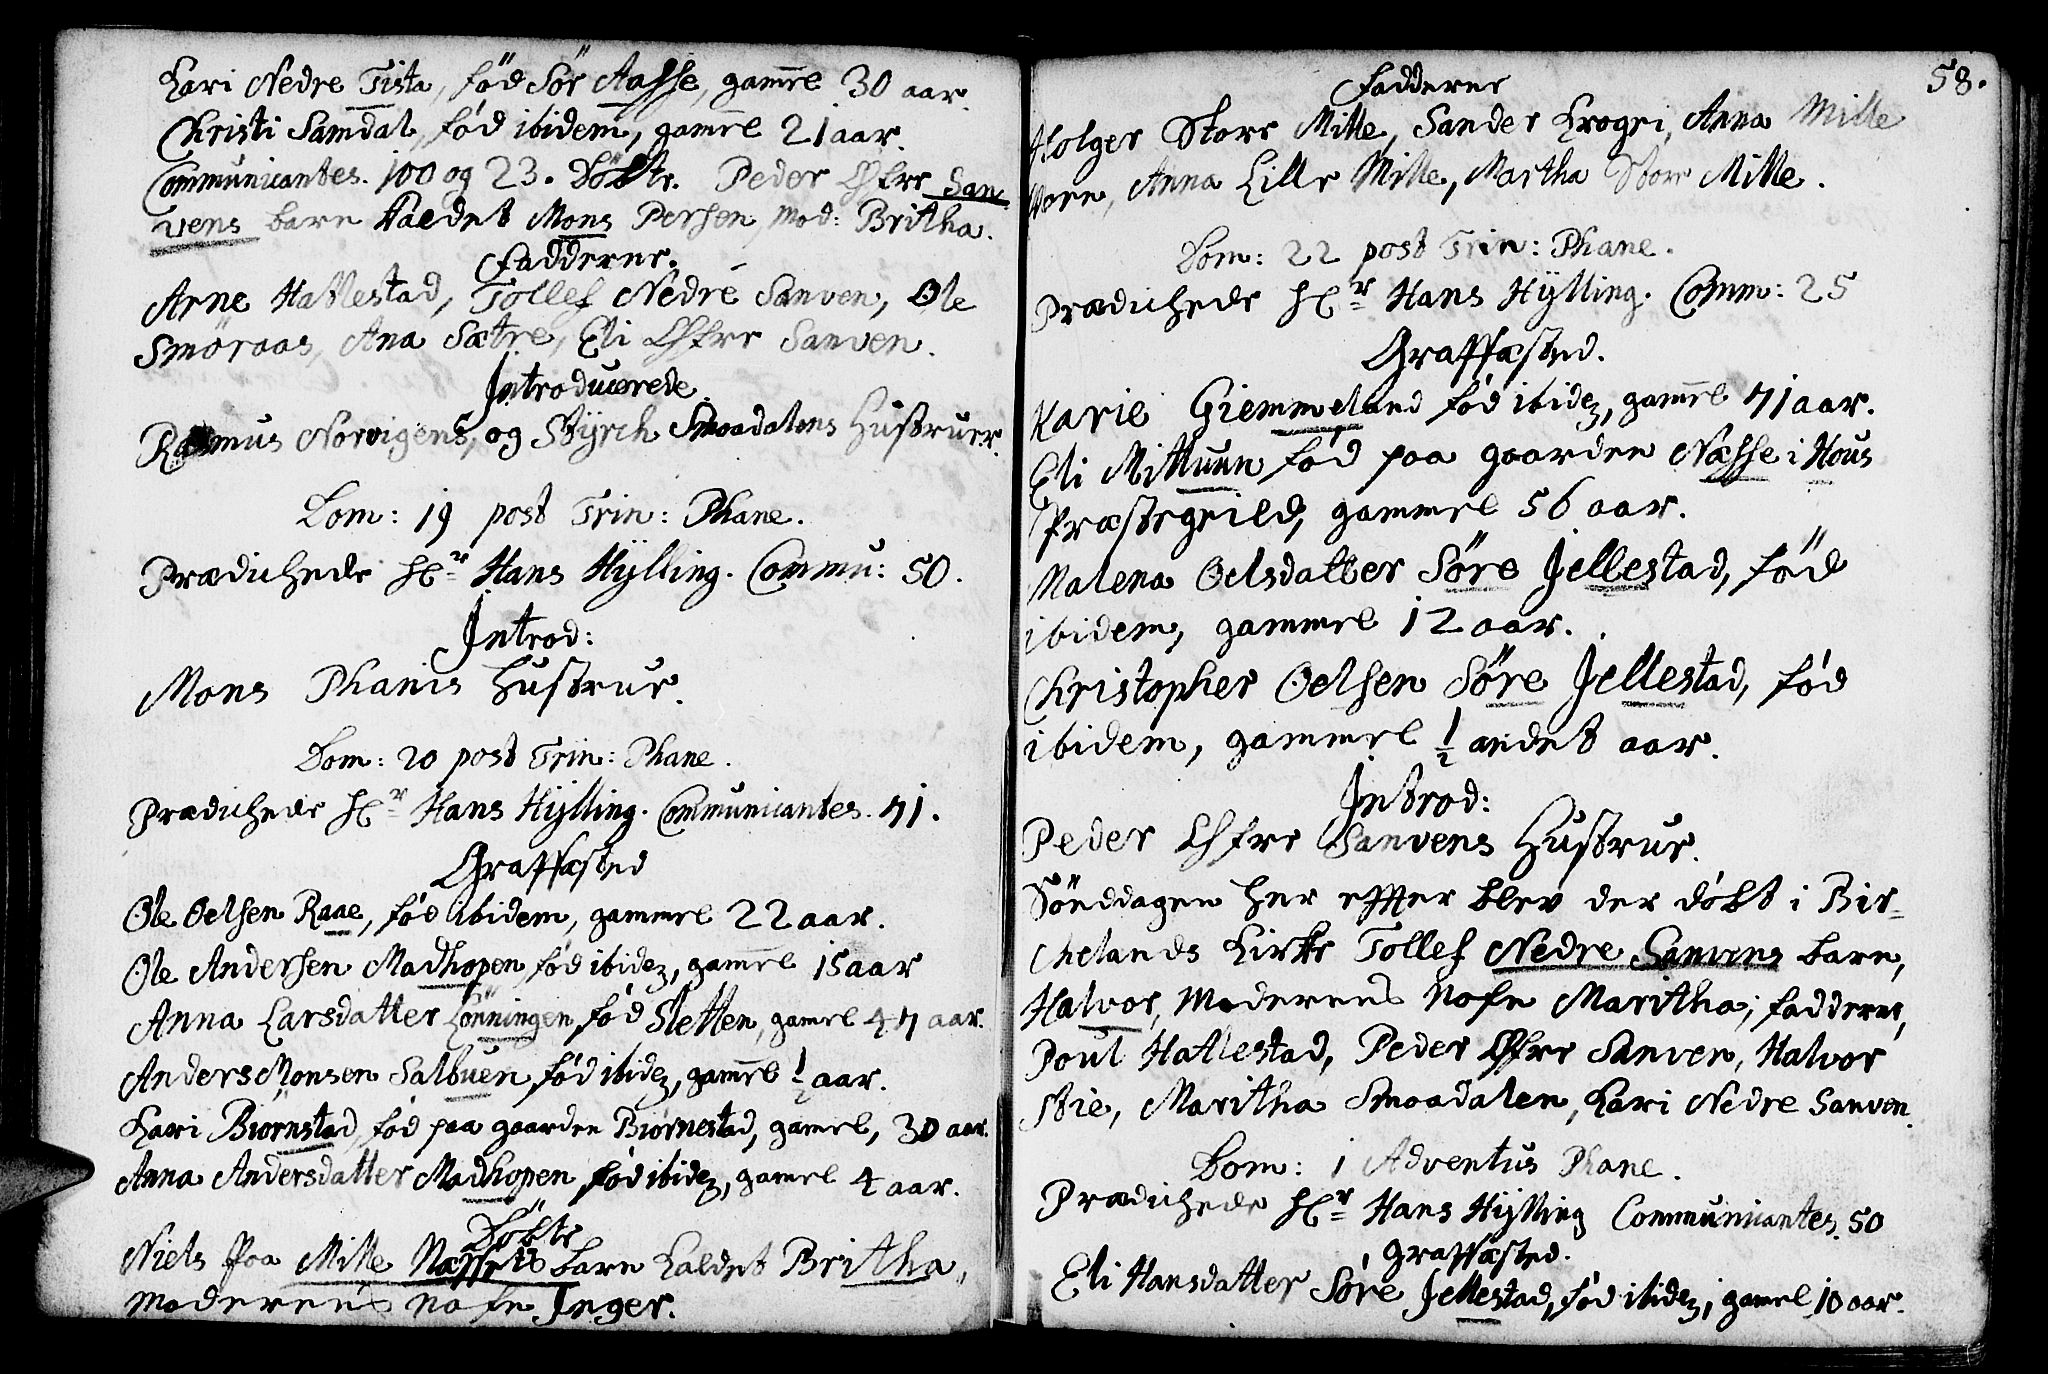 Kari Nedre Tista, fød Sør Aasse, gam̄el 30 aar.
Christi Samdal, fød ibidem, gam̄el 21 aar.
Communicantes. 100 og 23. Döbte. Peder Øfre San-
vens barn kaldet Mons Persen, Mod: Britha.
Fadderne.
Arne Hatlestad, Tollef Nedre Sanven, Ole
Smöraas, Ana Sætre, Eli Øfre Sanven.
Introducerede.
Rasmus Norvigens, og Styrch Smaadalens Hustruer.
Dom: 19 post Trin: Phane.
Prædichede Hr Hans Hÿlling. Commu: 50.
Introd:
Mons Phanis Hustrue.
Dom: 20 post Trin: Phane.
Prædichede Hr Hans Hÿlling. Communicantes. 71.
Graffæsted
Ole Oelsen Raae, fød ibidem, gammel 22 aar.
Ole Andersen Madhopen, fød ibidē, gam̄el 15 aar
Anna Larsdatter Lönningen, fød Sletten, gamel 47 aar.
Anders Monsen Salbuen, fød ibidē, gam̄el ½ aar.
Kari Biørnstad, fød paa gaarden Biørnestad, gamel, 30 aar.
Anna Andersdatter Madhopen, fød ibidē, gamel 4 aar.
Döbte
Niels Paa Mille Næssets barn Kaldet Britha,
Moderens Nafn Inger.
58.
Fadderne
Holger Store Mille, Sander Krogei, Anna Mille
Vore, Anna Lille Mille, Martha Store Mille.
Dom: 22 post Trin: Phane.
Prædichede Hr Hans Hÿlling. Comm: 25
Graffæsted.
Karie Giemmeland fød ibidē, gam̄el 71 aar.
Eli Mittuun fød paa gaarden Næsse i Hous
Præstegeild, gammel 56 aar.
Malena Oelsdatter Söre Jellestad, fød
ibidem, gammel 12 aar.
Christopher Oelsen Söre Jellestad, fød
ibidem, gammel ½ andet aar.
Introd:
Peder Øfre Sanvens Hustrue.
Sönddagen her effter blev der döbt i Bir-
chelands Kirke Tollef Nedre Sanvens barn,
Halvor, Moderens Nafn Maritha; fadderne,
Poul Hatlestad, Peder Øfre Sanven, Halvor
Stie, Maritha Smaadalen, Kari Nedre Sanven.
Dom: 1 Adventus Phane.
Prædichede Hr Hans Hÿlling Communicantes. 50
Graffæsted.
Eli Hansdatter Söre Jellestad, fød ibidē, gamel 10 aar.